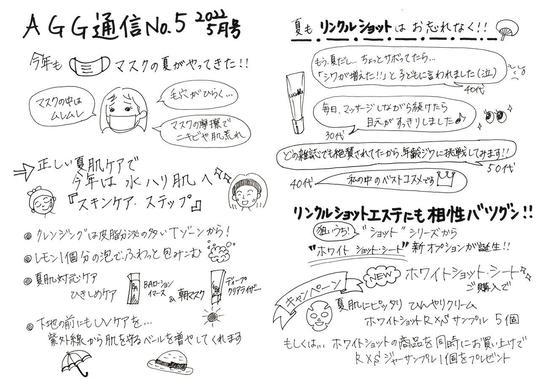 AGG通信No.5 2022 5月号
今年も マスクの夏がやってきた!!
マスクの中は
ムレムレ
毛穴がひらく…
マスクの摩擦で
ニキビや肌荒れ
正しい夏肌ケアで
今年は水ハリ肌へ
『スキンケア.ステップ』
クレンジングは皮脂分泌の多いTゾーンから!
レモン1個分の泡でふわっと包みこむ
夏肌対応ケア
ひきしめケア
BAローション
イマース
&朝マスク
ディープ
クリアライザー
下地の前にもUVケアを…
紫外線から肌を守るベールを増やしてくれます
夏も リンクルショット はお忘れなく!!
もう、夏だし、ちょっとサボってたら…
「シワが増えた!!」と子どもに言われました(泣)
40代
毎日、マッサージしながら続けたら
目元がすっきりしました♪
30代
どの雑誌でも絶賛されてたから、年齢ジワに挑戦してみます!!
50代
40代
私の中のベストコスメです
リンクルショットエステにも相性バツグン!!
狙いうち! "ショット"シリーズから
"ホワイト ショット・シート" 新オプションが誕生!!
キャンペーン
NEW
ホワイトショット・シート
ご購入で
夏肌にピッタリ ひんやりクリーム
ホワイトショットRXSサンプル 5個
もしくは… ホワイトショットの商品を同時にお買い上げで
RXSジャーサンプル1個をプレゼント